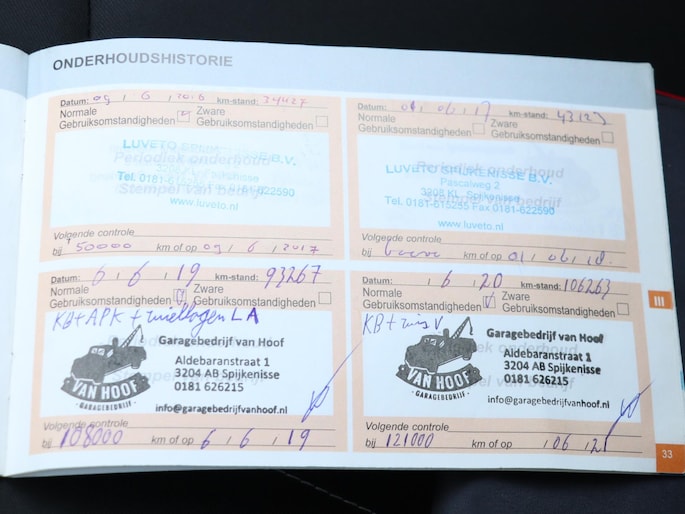 ONDERHOUDSHISTORIE
Datum: 09 / 6 / 2016 km-stand: 74427
Normale Gebruiksomstandigheden Zware Gebruiksomstandigheden
Periodiek onderhoud
Stempel van bedrijf
LUVETO SPIJKENISSE B.V.
www.luveto.nl
Volgende controle
bij 50000 km of op 09 / 6 / 2017
Datum: 01 / 06 / 17 km-stand: 43123
Normale Gebruiksomstandigheden Zware Gebruiksomstandigheden
Periodiek onderhoud
LUVETO SPIJKENISSE B.V.
Pascalweg 2
3208 KL Spijkenisse
Stempel van bedrijf
Tel. 0181-615255 Fax 0181-622590
www.luveto.nl
Volgende controle
bij km of op 01 / 06 / 18
Datum: 6 / 6 / 19 km-stand: 93267
Normale Gebruiksomstandigheden Zware Gebruiksomstandigheden
KB + APK + wiellagen LA
VAN HOOF
GARAGEBEDRIJF
Garagebedrijf van Hoof
Aldebaranstraat 1
3204 AB Spijkenisse
0181 626215
info@garagebedrijfvanhoof.nl
Volgende controle
bij 108000 km of op 6 / 6 / 19
Datum: / 6 / 20 km-stand: 106263
Normale Gebruiksomstandigheden Zware Gebruiksomstandigheden
KB + V
VAN HOOF
GARAGEBEDRIJF
Garagebedrijf van Hoof
Aldebaranstraat 1
3204 AB Spijkenisse
0181 626215
info@garagebedrijfvanhoof.nl
Volgende controle
bij 121000 km of op / 06 / 21
III
33